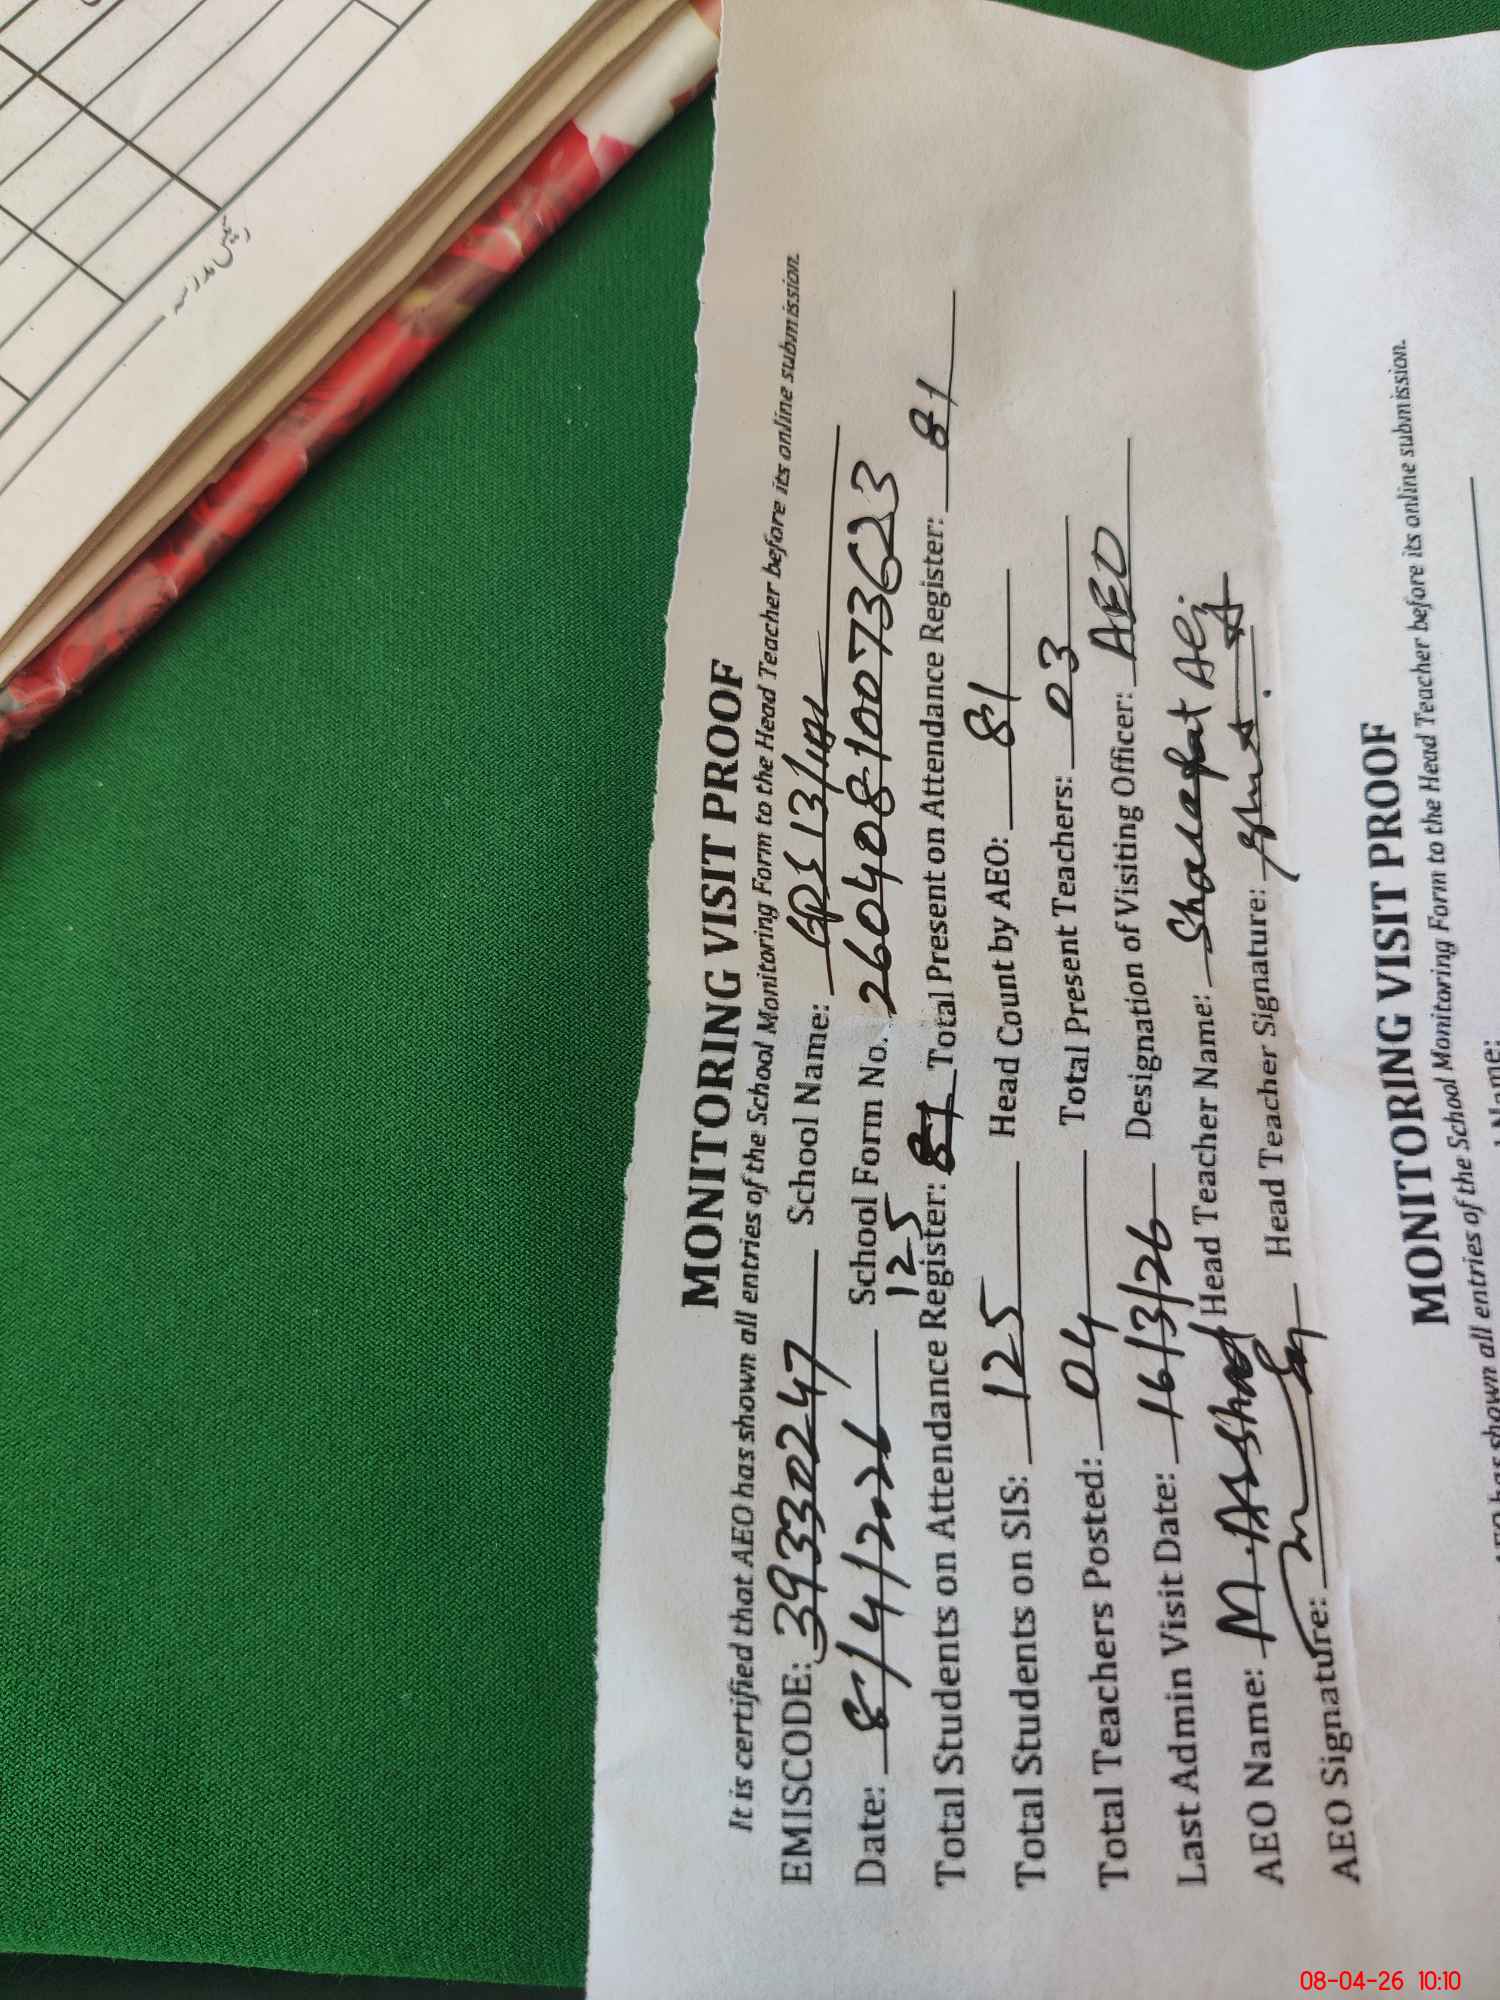 رئیس مدرسہ
MONITORING VISIT PROOF
It is certified that AEO has shown all entries of the School Monitoring Form to the Head Teacher before its online submission.
EMISCODE: 39330247 School Name: GPS 13/
Date: 8/4/2026 School Form No. 26040810073623
Total Students on Attendance Register: 125 81 Total Present on Attendance Register: 81
Total Students on SIS: 125 Head Count by AEO: 81
Total Teachers Posted: 04 Total Present Teachers: 03
Last Admin Visit Date: 16/3/26 Designation of Visiting Officer: AEO
AEO Name: M. Arshad Head Teacher Name: Sharafat Ali
AEO Signature: Head Teacher Signature:
MONITORING VISIT PROOF
AEO has shown all entries of the School Monitoring Form to the Head Teacher before its online submission.
Name:
08-04-26 10:10